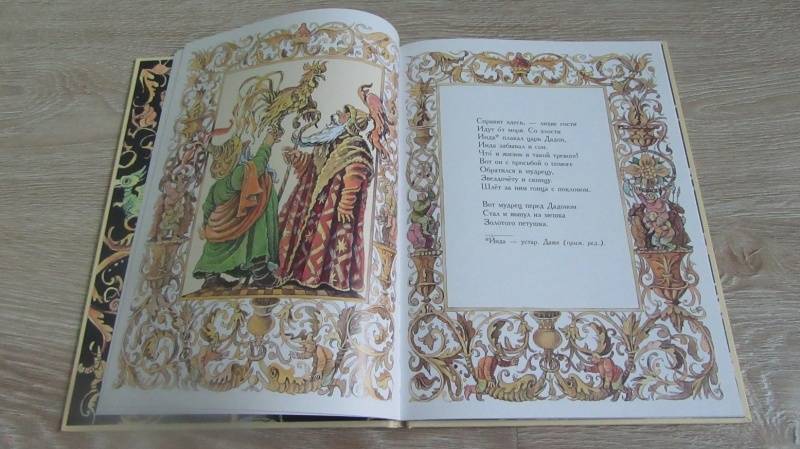 Справят здесь, — лихие гости
Идут о́т моря. Со злости
Инда* плакал царь Дадон,
Инда забывал и сон.
Что́ и жизнь в такой тревоге!
Вот он с просьбой о помоге
Обратился к мудрецу,
Звездочёту и скопцу.
Шлёт за ним гонца с поклоном.
Вот мудрец перед Дадоном
Стал и вынул из мешка
Золотого петушка.
*Инда — устар. Даже (прим. ред.).